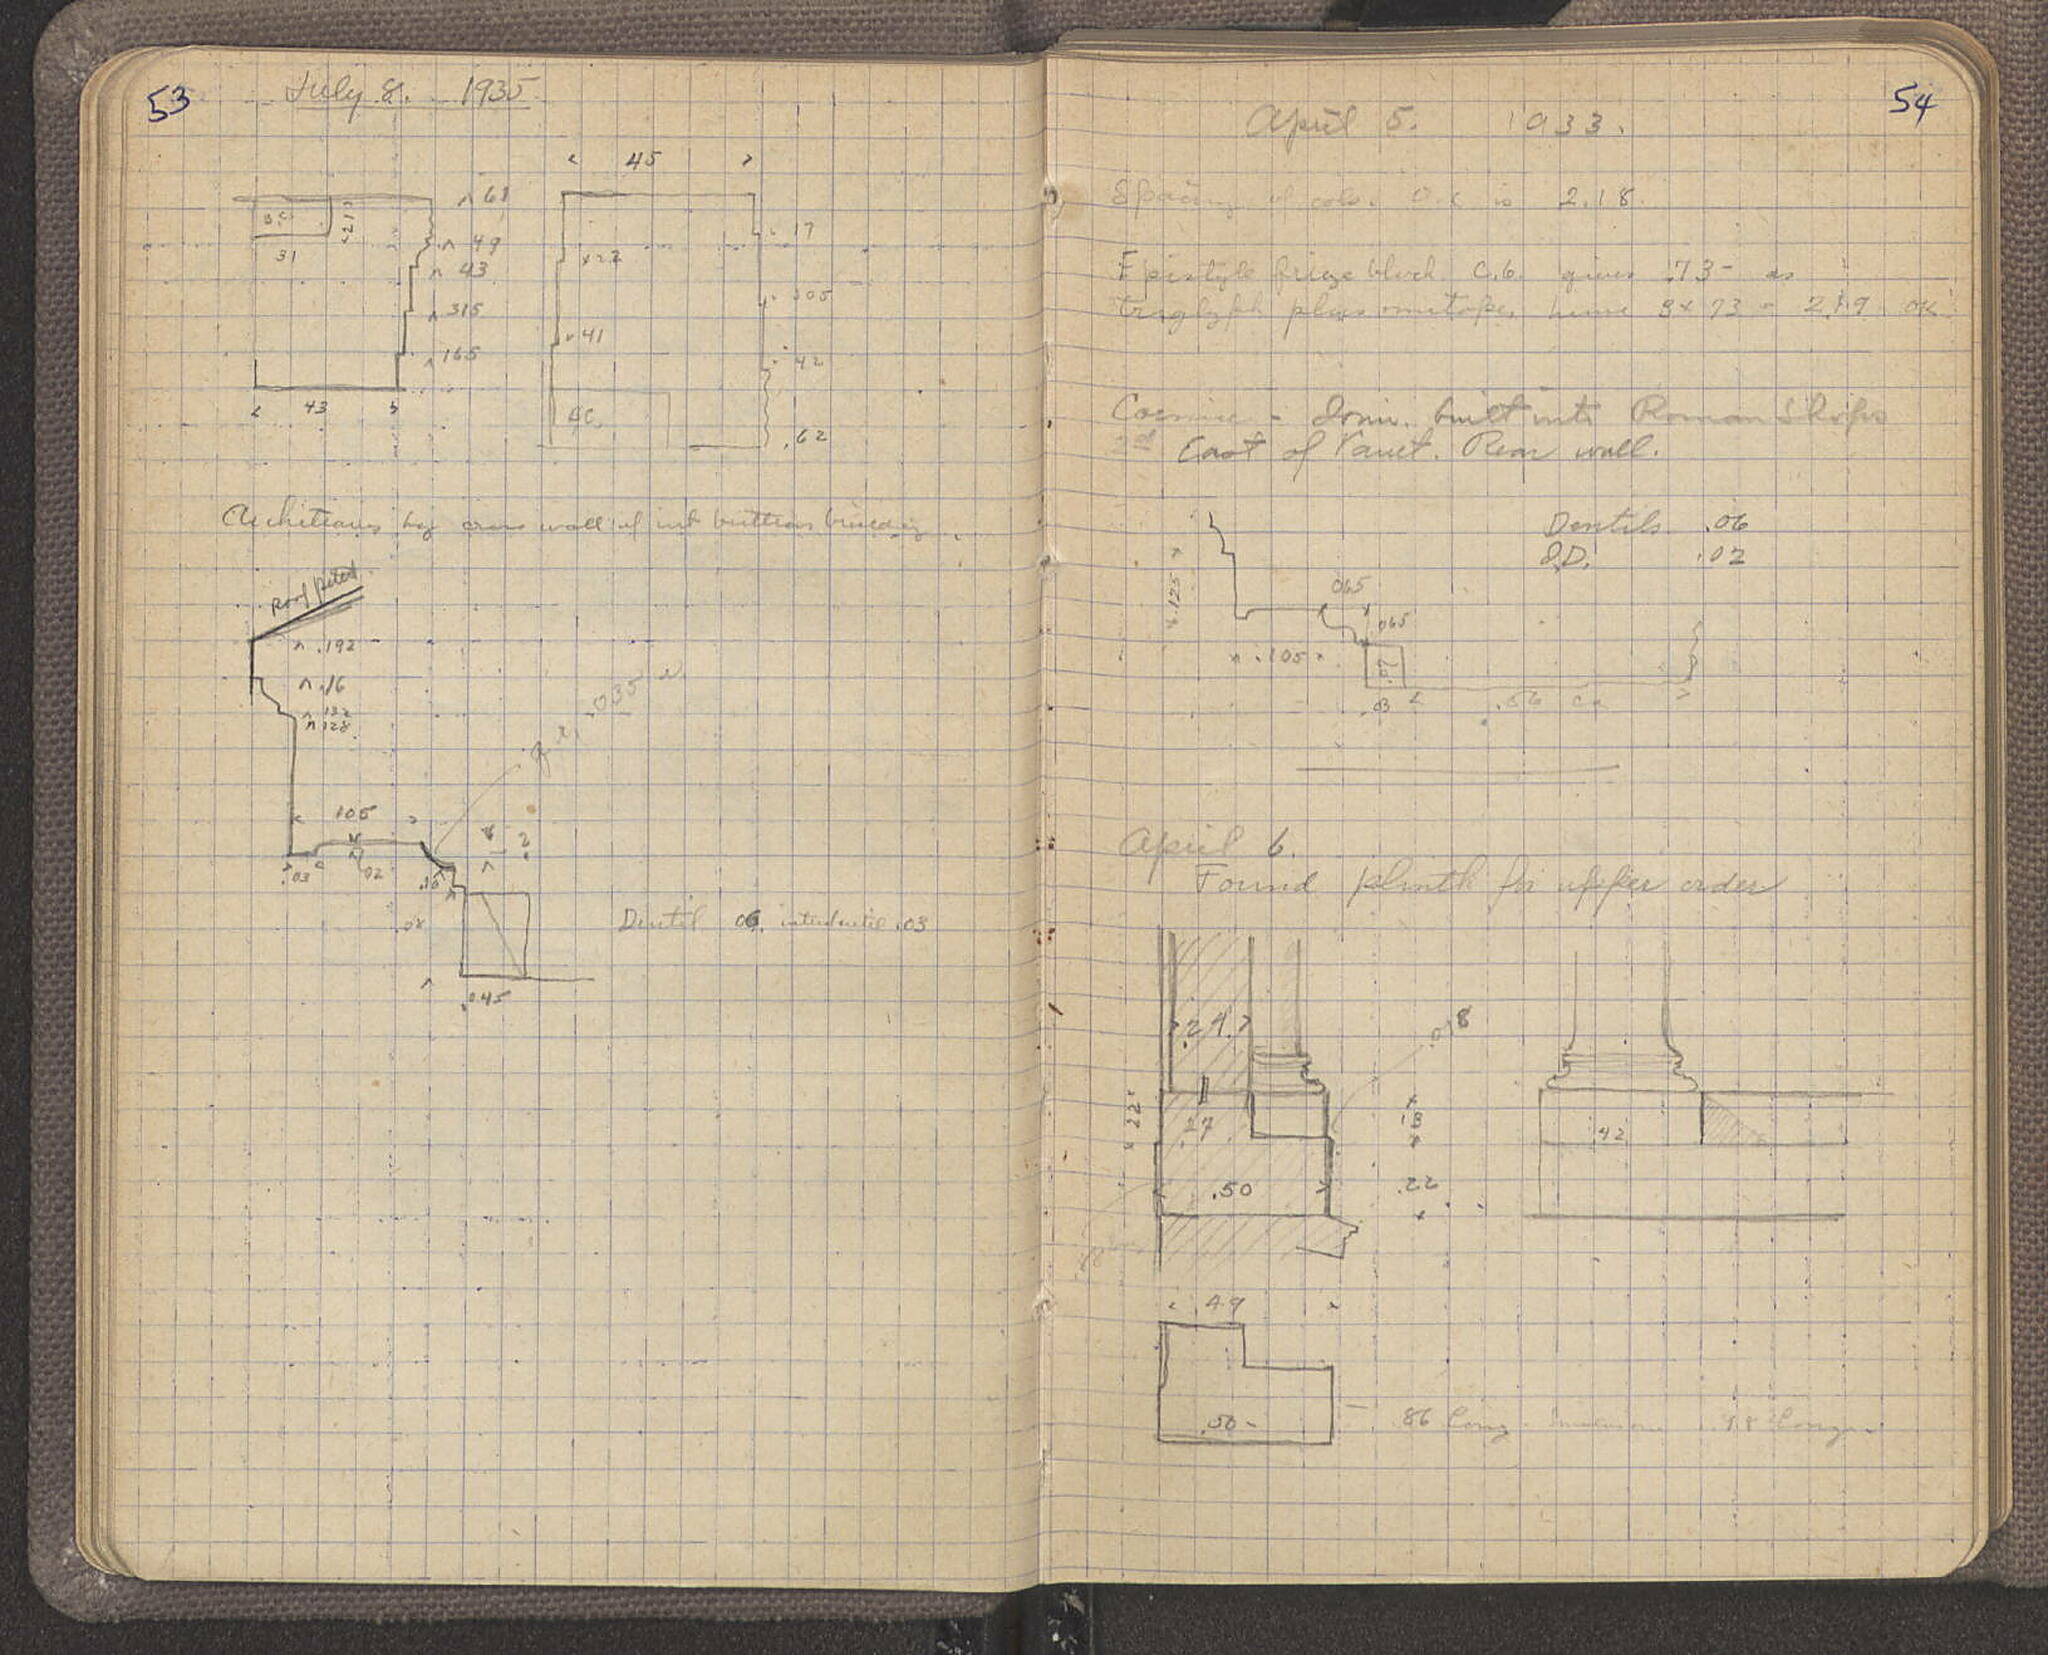 53
July 8. 1935
45
61
35
21
31
49
43
315
165
43
17
22
305
41
42
.62
Architraves by cross wall of int buttress building.
roof pitch
.192
.16
132
128
.035
105
.03
02
2
.08
.045
Dentil 06. interdentil .03
54
April 5. 1933.
Spacing of cols. O.K is 2.18.
Epistyle frieze block C.6. gives .73- as
triglyph plus metope, hence 3x73 = 2.19 OK
Cornice - Ionic. built into Roman Shops
East of Vault. Rear wall.
Dentils .06
I.D. .02
.125
065
065
.105
.07
.03
.56 ca
April 6.
Found plinth for upper order
.24
.018
22
27
18
42
.50
.22
49
.50-
.86 long